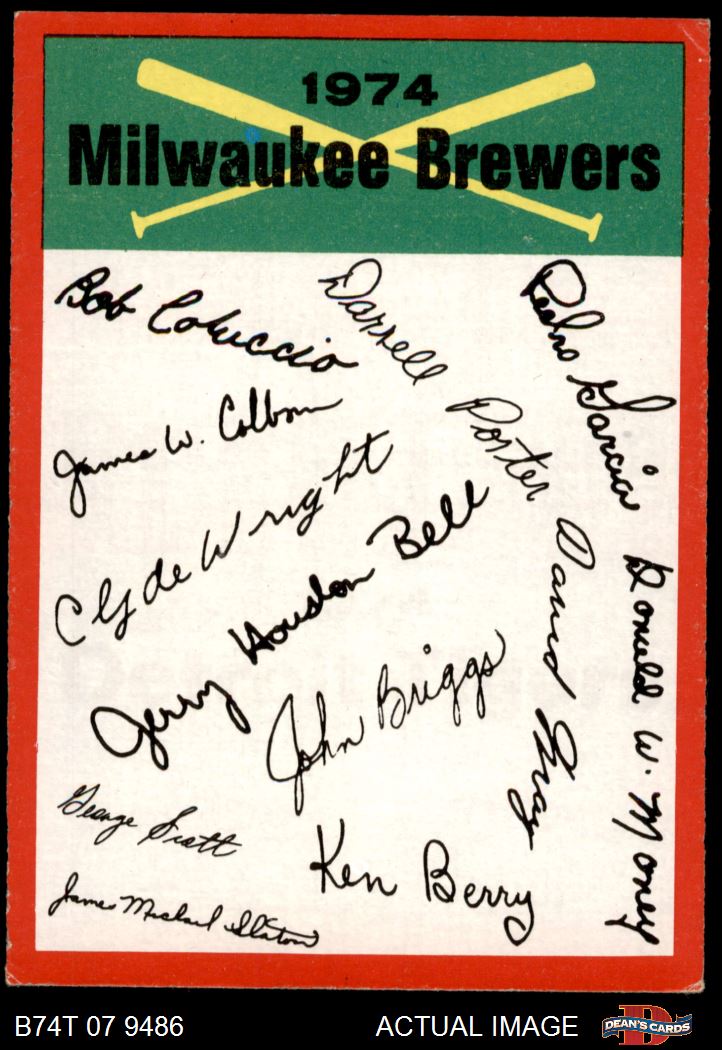 1974
Milwaukee Brewers
Bob Coluccio
Darrell Porter
Pedro Garcia
James W. Colborn
Clyde Wright
Jerry Houston Bell
David May
Donald W. Money
John Briggs
George Scott
Ken Berry
James Michael Slaton
B74T 07 9486
ACTUAL IMAGE
D
DEAN'S CARDS